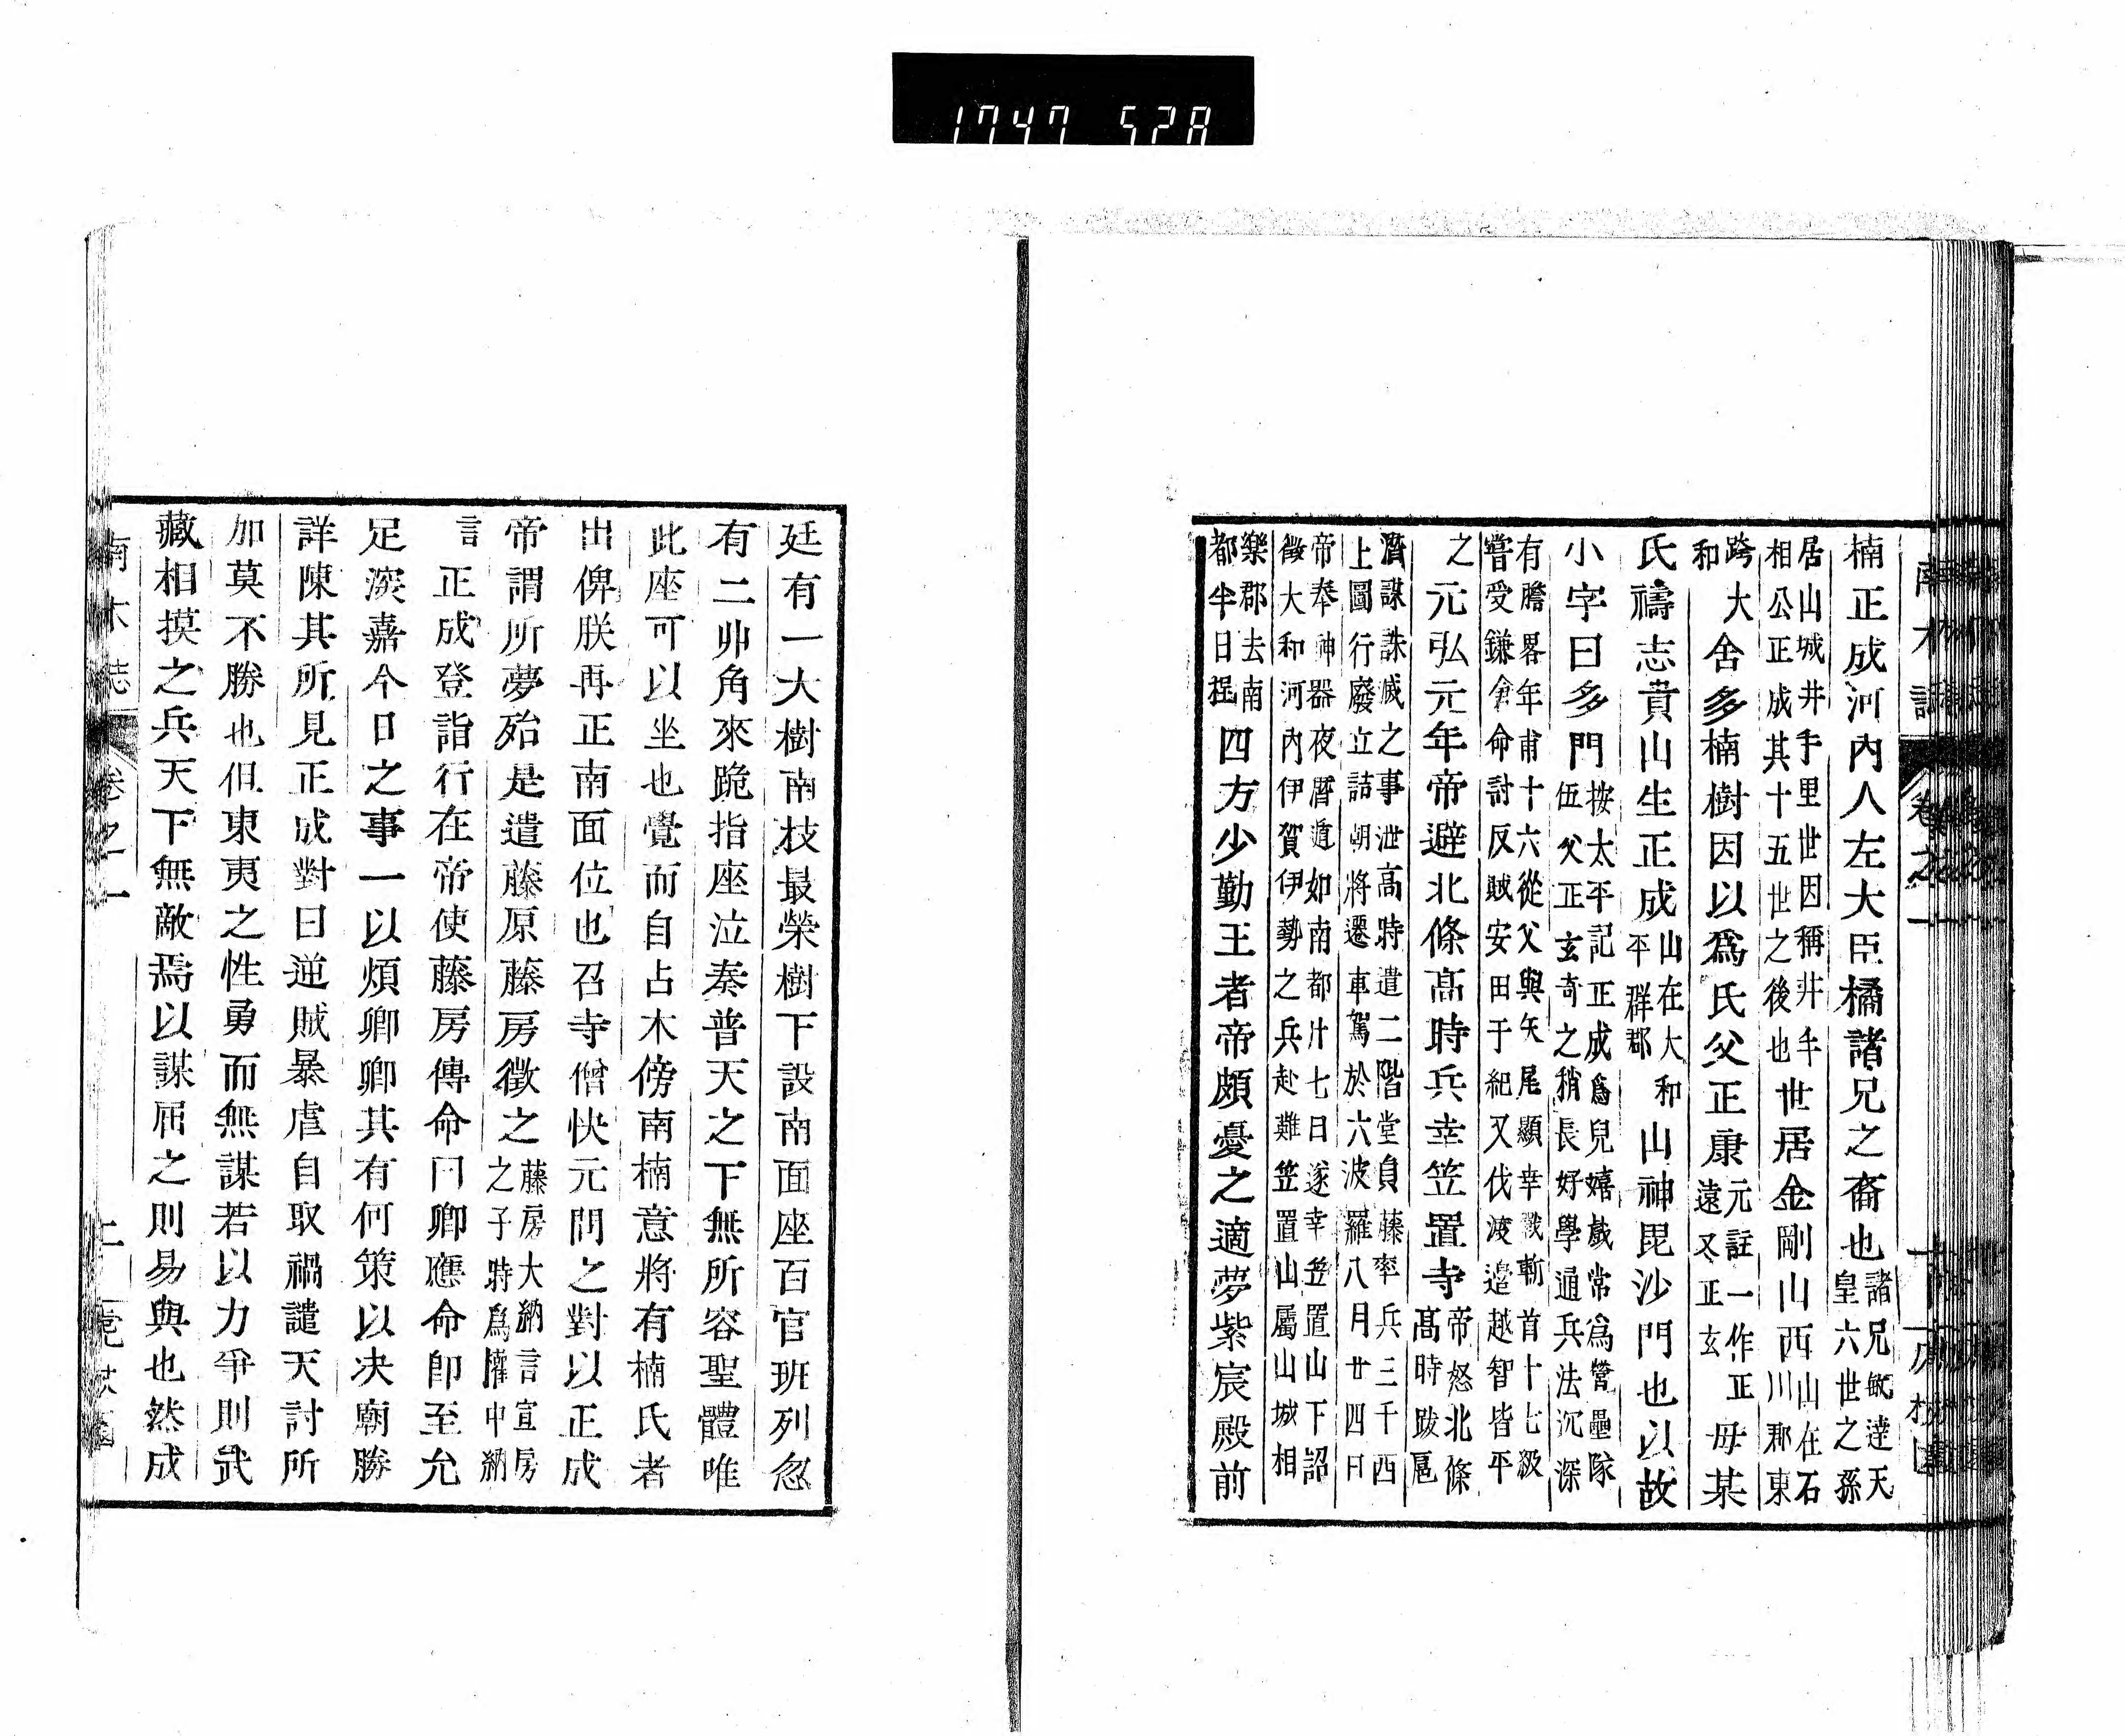 1747 528
楠正成河內人左大臣橘諸兄之裔也諸兄敏達天皇六世之孫
居山城井手里世因稱井手相公正成其十五世之後也世居金剛山西山在石川郡東
跨大和舍多楠樹因以爲氏父正康元註一作正遠又正玄母某
氏禱志貴山生正成山在大和平群郡山神毘沙門也以故
小字曰多門按太平記正成爲兒嬉戲常爲營壘隊伍父正玄奇之稍長好學通兵法沉深
有膽畧年甫十六從父與矢尾顯幸戰斬首十七級嘗受鎌倉命討反賊安田于紀又伐渡邉越智皆平
之元弘元年帝避北條高時兵幸笠置寺帝怒北條高時跋扈
濳謀誅滅之事泄高時遣二階堂貞藤率兵三千西上圖行廢立詰朝將遷車駕於六波羅八月廿四日
帝奉神器夜潛遁如南都廿七日遂幸笠置山下詔徵大和河內伊賀伊勢之兵赴難笠置山屬山城相
樂郡去南都半日程四方少勤王者帝頗憂之適夢紫宸殿前
廷有一大樹南枝最榮樹下設南面座百官班列忽
有二丱角來跪指座泣奏普天之下無所容聖體唯
此座可以坐也覺而自占木傍南楠意將有楠氏者
出俾朕再正南面位也召寺僧快元問之對以正成
帝謂所夢殆是遣藤原藤房徵之藤房大納言宣房之子時爲權中納
言正成登詣行在帝使藤房傳命曰卿應命卽至允
足深嘉今日之事一以煩卿卿其有何策以决廟勝
詳陳其所見正成對曰逆賊暴虐自取禍譴天討所
加莫不勝也但東夷之性勇而無謀若以力爭則武
藏相摸之兵天下無敵焉以謀屈之則易與也然成
南木誌 卷之一